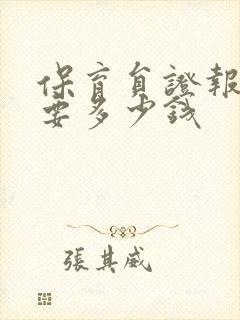 保育員證報
要多少錢
張其威